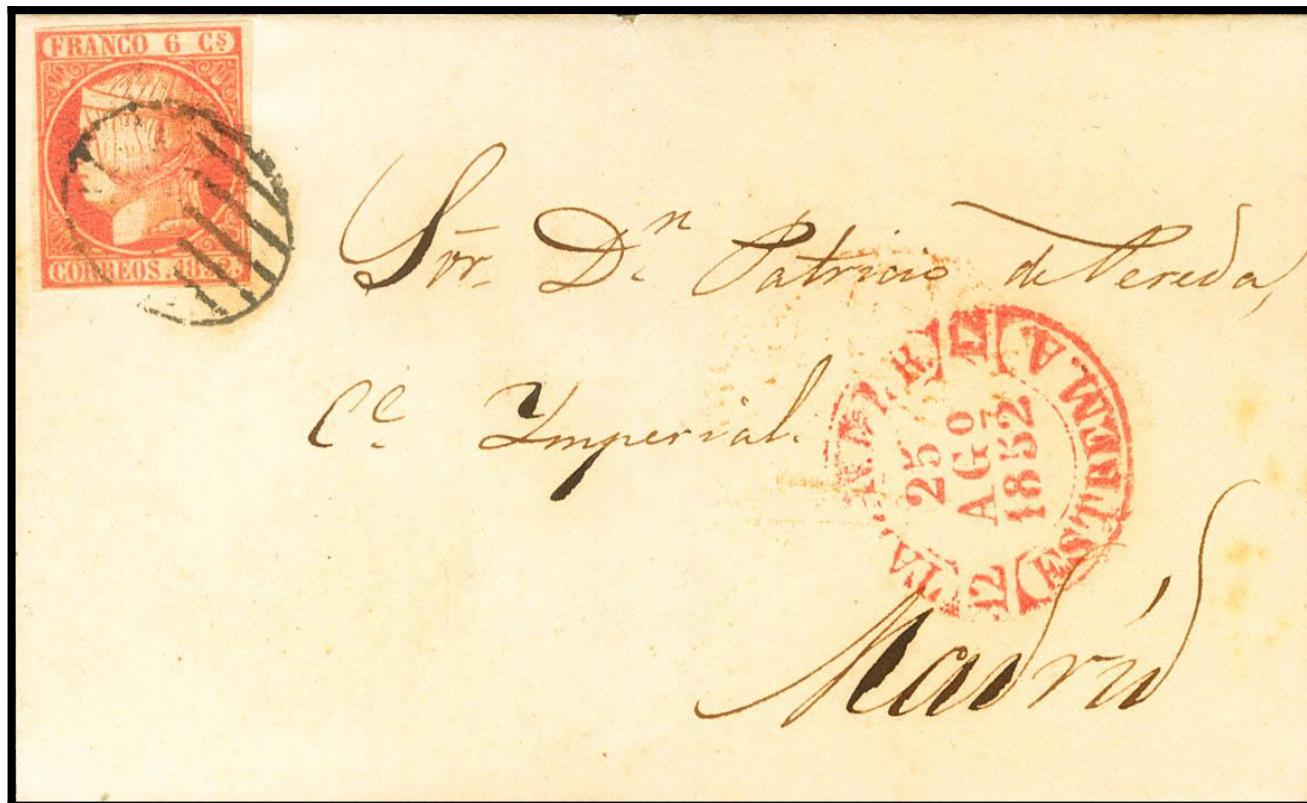 FRANCO 6 Cs
CORREOS. 1852.
Sor. Dn Patricio de Pereda,
Ce Imperial.
25
AGO
1852
ESTREM. A.
12
Madrid